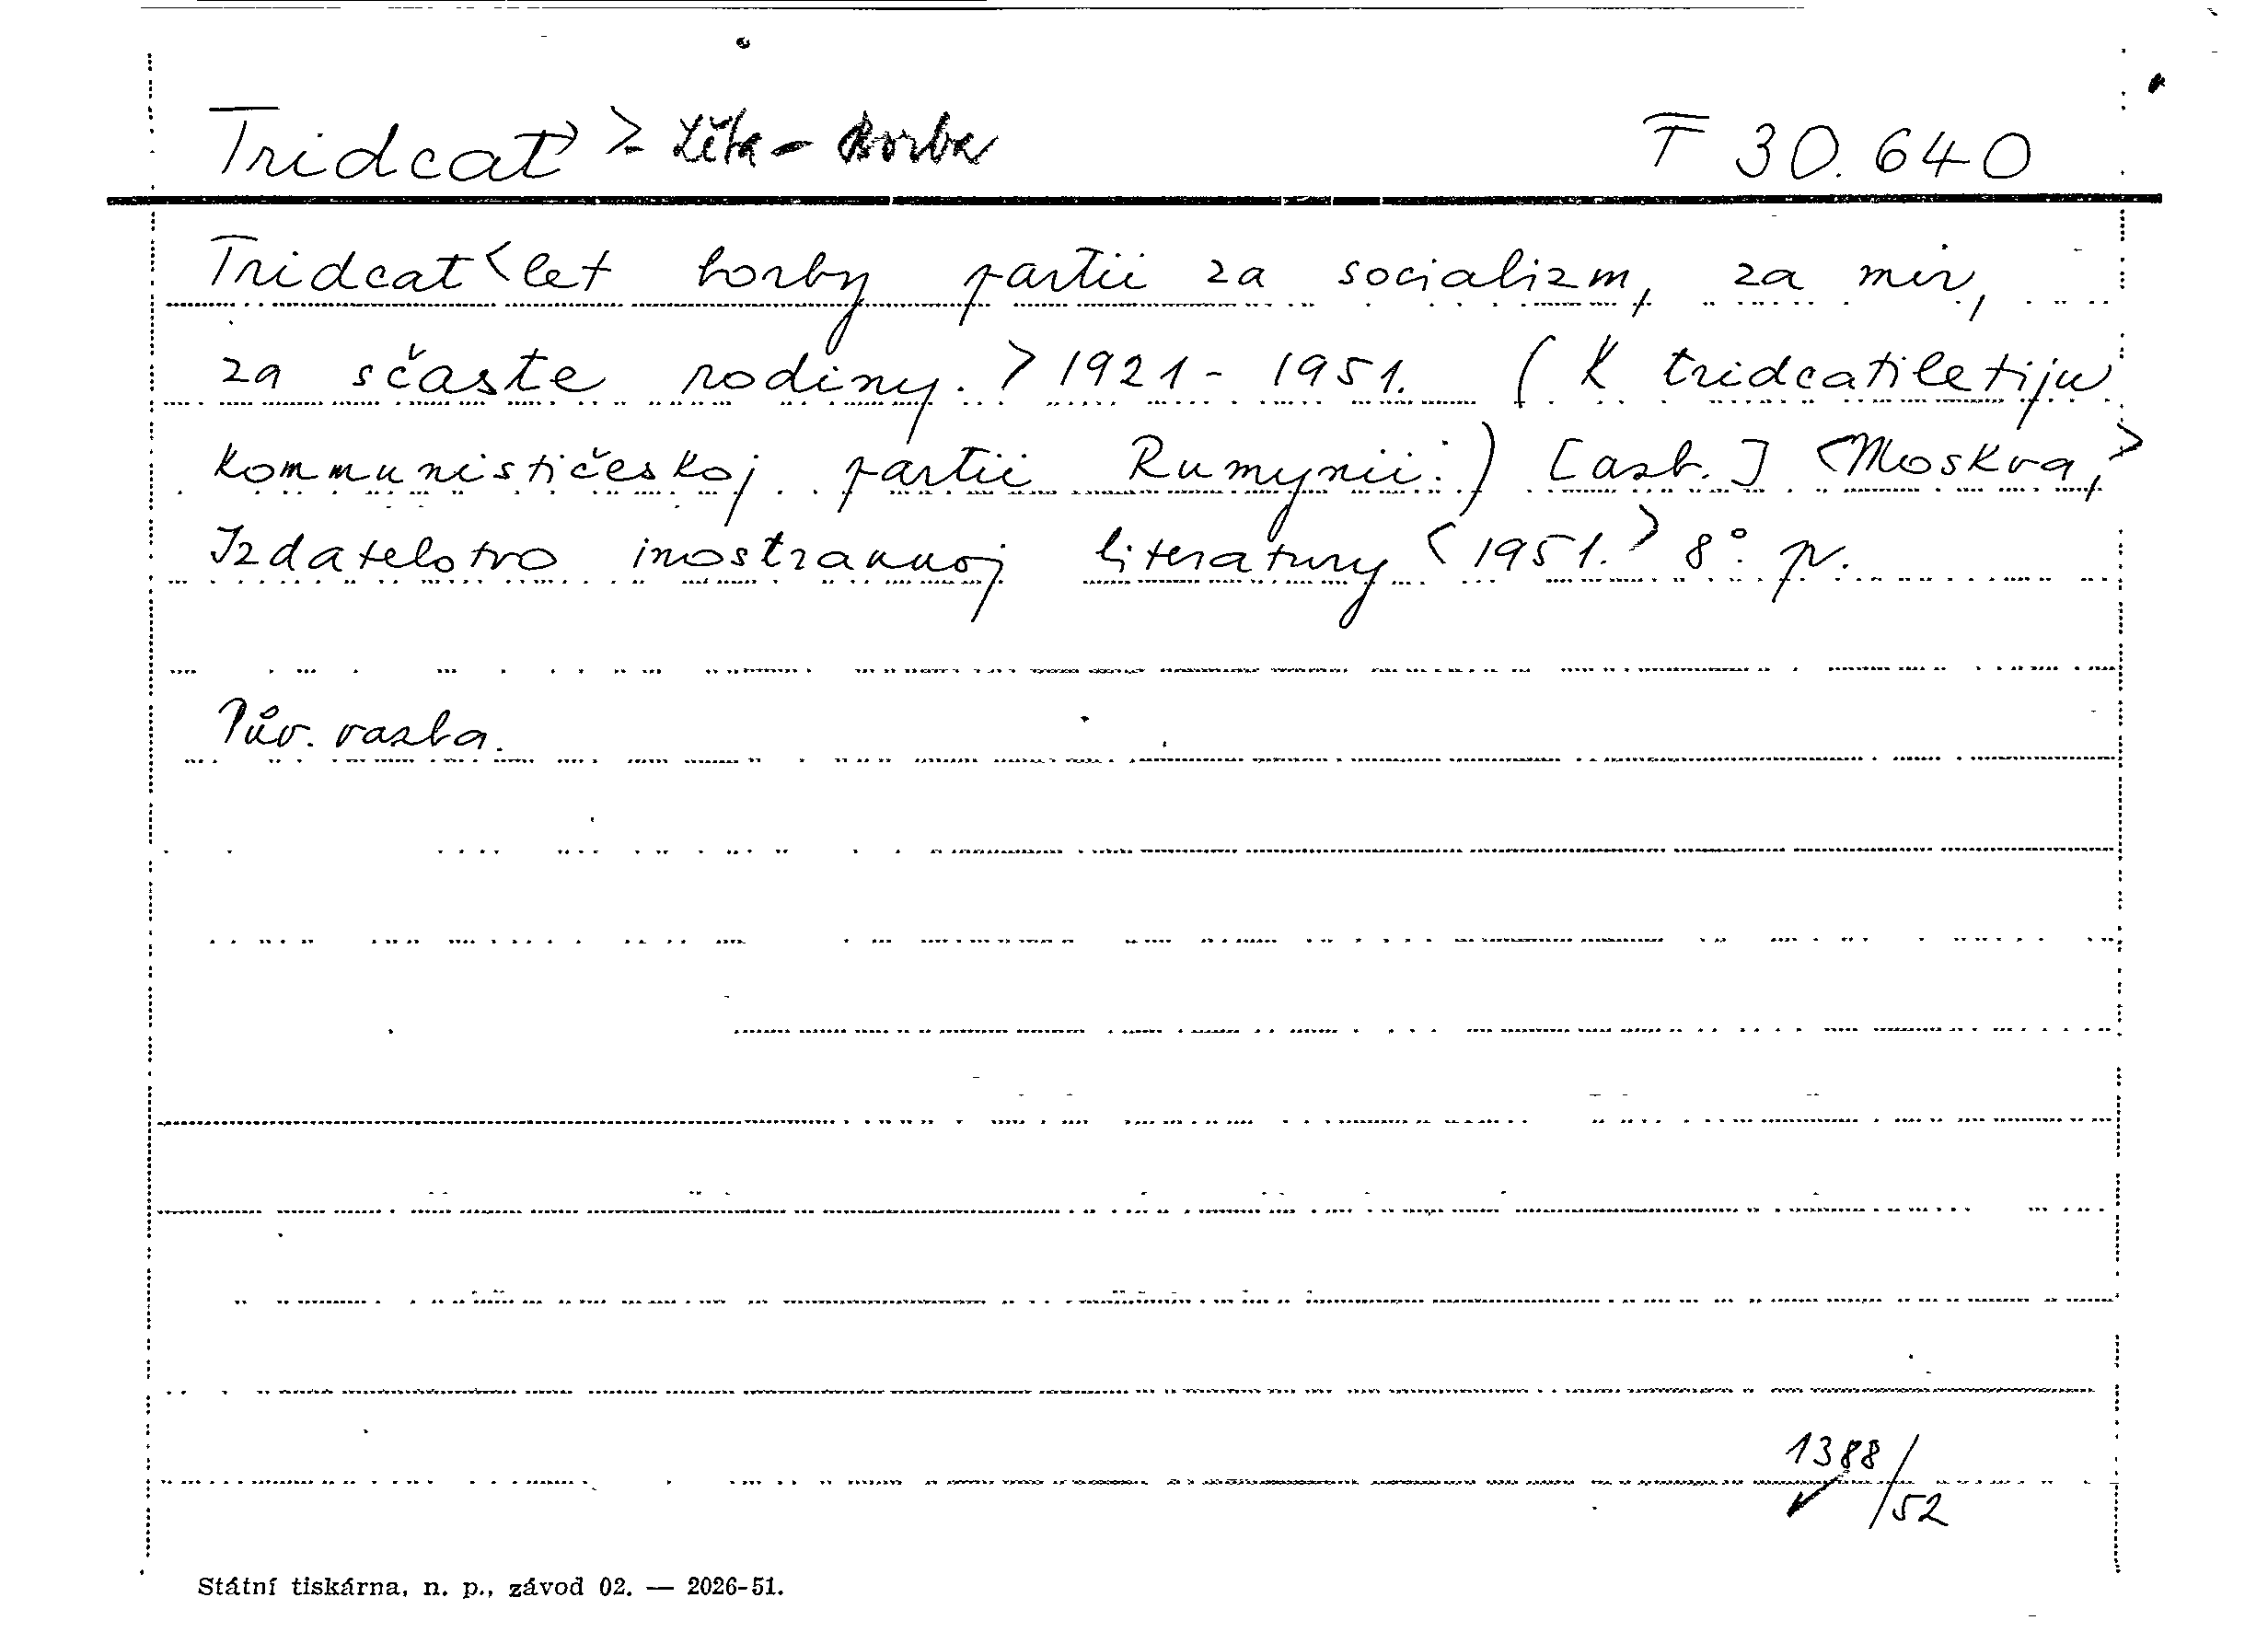 Tridcat > - Lěta - Borba T 30.640
Tridcat < let borby partii za socializm, za mir,
za sčaste rodiny. > 1921 - 1951. ( K tridcatiletiju
kommunističeskoj partii Rumynii. ) [azb.] < Moskva, >
Izdatelstvo inostrannoj literatury < 1951. > 8° pv.
Pův. vazba.
1388/52
Státní tiskárna, n. p., závod 02. — 2026-51.